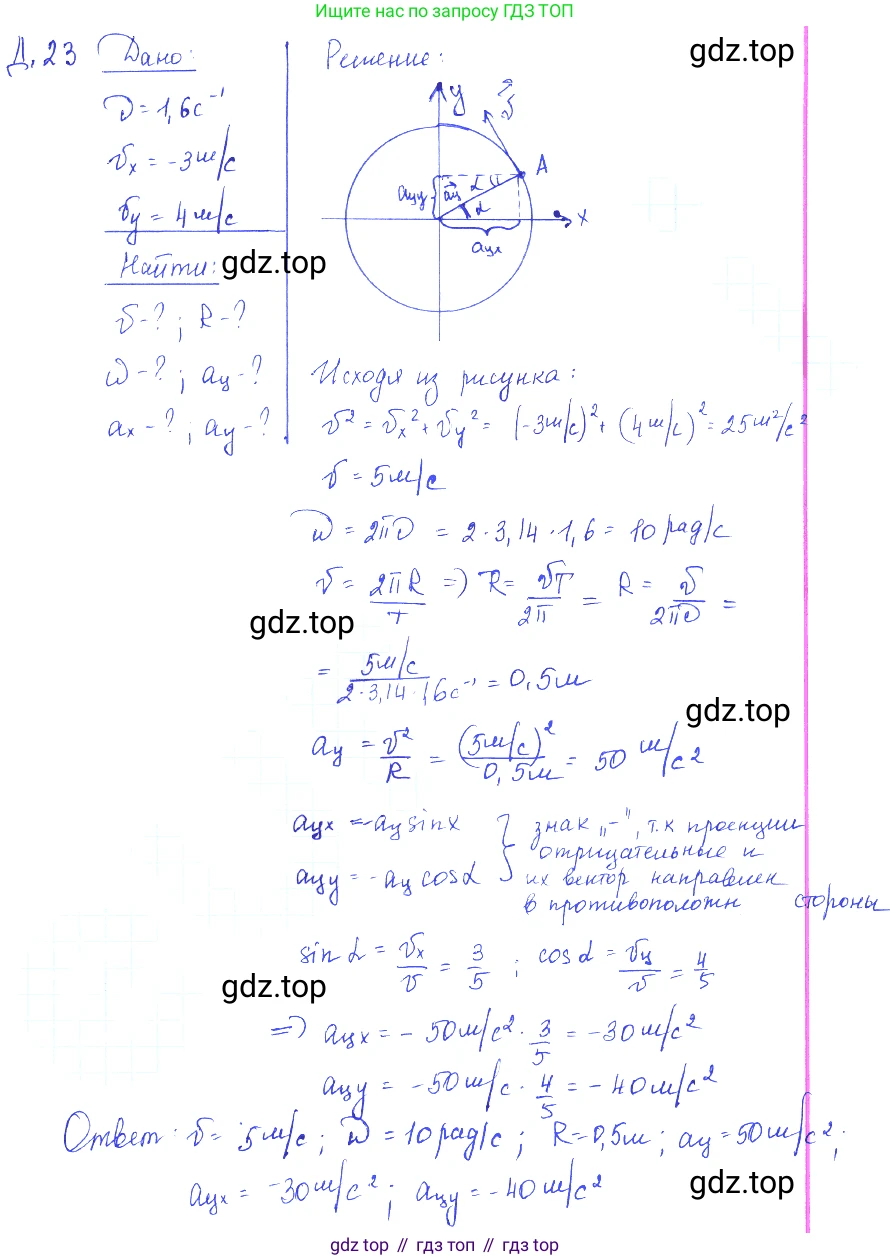 Ищите нас по запросу ГДЗ ТОП
Д.23 Дано: Решение: gdz.top
ν = 1,6 с⁻¹
υx = -3 м/с
υy = 4 м/с
Найти: gdz.top
υ - ? ; R - ?
ω - ? ; aц - ?
ax - ? ; aу - ?
y υ⃗ A
aцy a⃗ц α α x
aцx
Исходя из рисунка:
υ² = υx² + υy² = (-3 м/с)² + (4 м/с)² = 25 м²/с²
υ = 5 м/с
ω = 2πν = 2 · 3,14 · 1,6 = 10 рад/с
υ = 2πR/T => R = υT/2π = R = υ/2πν =
gdz.top
= 5 м/с / 2·3,14·1,6 с⁻¹ = 0,5 м
gdz.top
aц = υ²/R = (5 м/с)²/0,5 м = 50 м/с²
aцx = -aц sin x } знак „-", т.к проекции
отрицательные и
aцy = -aц cos α их вектор направлен
в противоположн стороны
sin α = υx/υ = 3/5 ; cos α = υy/υ = 4/5
gdz.top
=> aцx = - 50 м/с² · 3/5 = -30 м/с²
aцy = -50 м/с · 4/5 = - 40 м/с²
Ответ: υ = 5 м/с ; ω = 10 рад/с ; R = 0,5 м ; aц = 50 м/с² ;
aцx = -30 м/с² ; aцy = -40 м/с² gdz.top
gdz top // гдз топ // gdz top